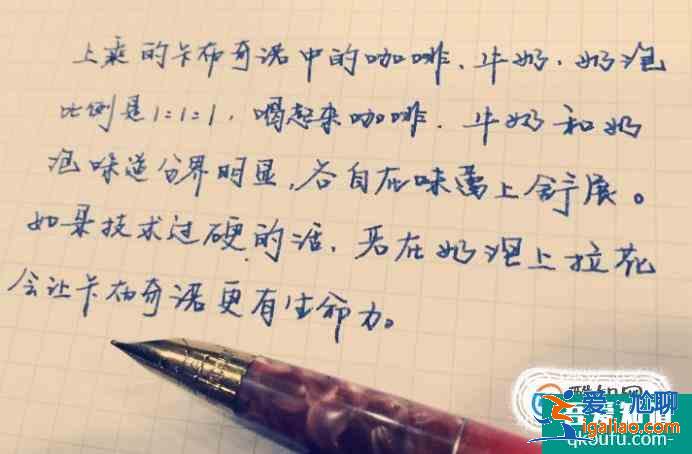 上乘的卡布奇诺中的咖啡、牛奶、奶泡
比例是1:1:1，喝起来咖啡、牛奶和奶
泡味道分界明显，各自在味蕾上舒展。
如果技术过硬的话，若在奶泡上拉花
会让卡布奇诺更有生命力。
爱尬聊
igaliao.com
qk5ufu.com